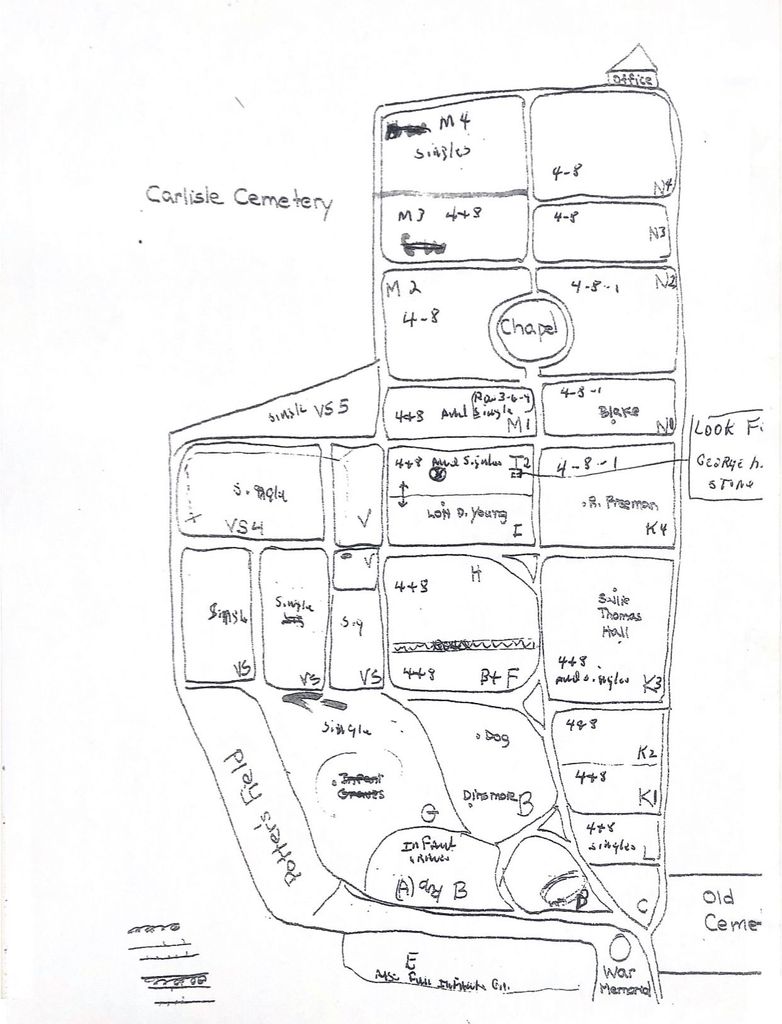 Office
M 4
singles
4-8
N4
Carlisle Cemetery
M 3 4+8
4-8
N3
M 2
4-8
4-8-1
N2
Chapel
single VS5
4+8 And Single
M1
4-8-1
Blake
N1
LOOK F
GEORGE H.
4+8 And Singles I2
4-8-1
Single
VS4
V
Lois D. Young
I
R. Freeman
K4
V
4+8
H
Single
VS
Single
VS
Sig
VS
4+8
B+F
Sallie
Thomas
Hall
4+8
And Singles
K3
Single
Dog
4+8
K2
4+8
K1
Infant
Graves
G
Dinsmore
B
Potter's Field
4+8
singles
L
Infant
Graves
(A) and B
B
C
Old
Ceme
E
War
Memorial